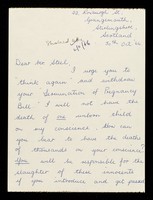 Grangemouth,
Stirlingshire,
Scotland
Dear Mr Steel,
I urge you to
"think again" and withdraw
your Termination of Pregnancy
Bill. I will not have the
death of one unborn child
on my conscience. How can
you bear to have the deaths
of thousands on your conscience?
You will be responsible for the
slaughter of these innocents
if you introduce and get passed